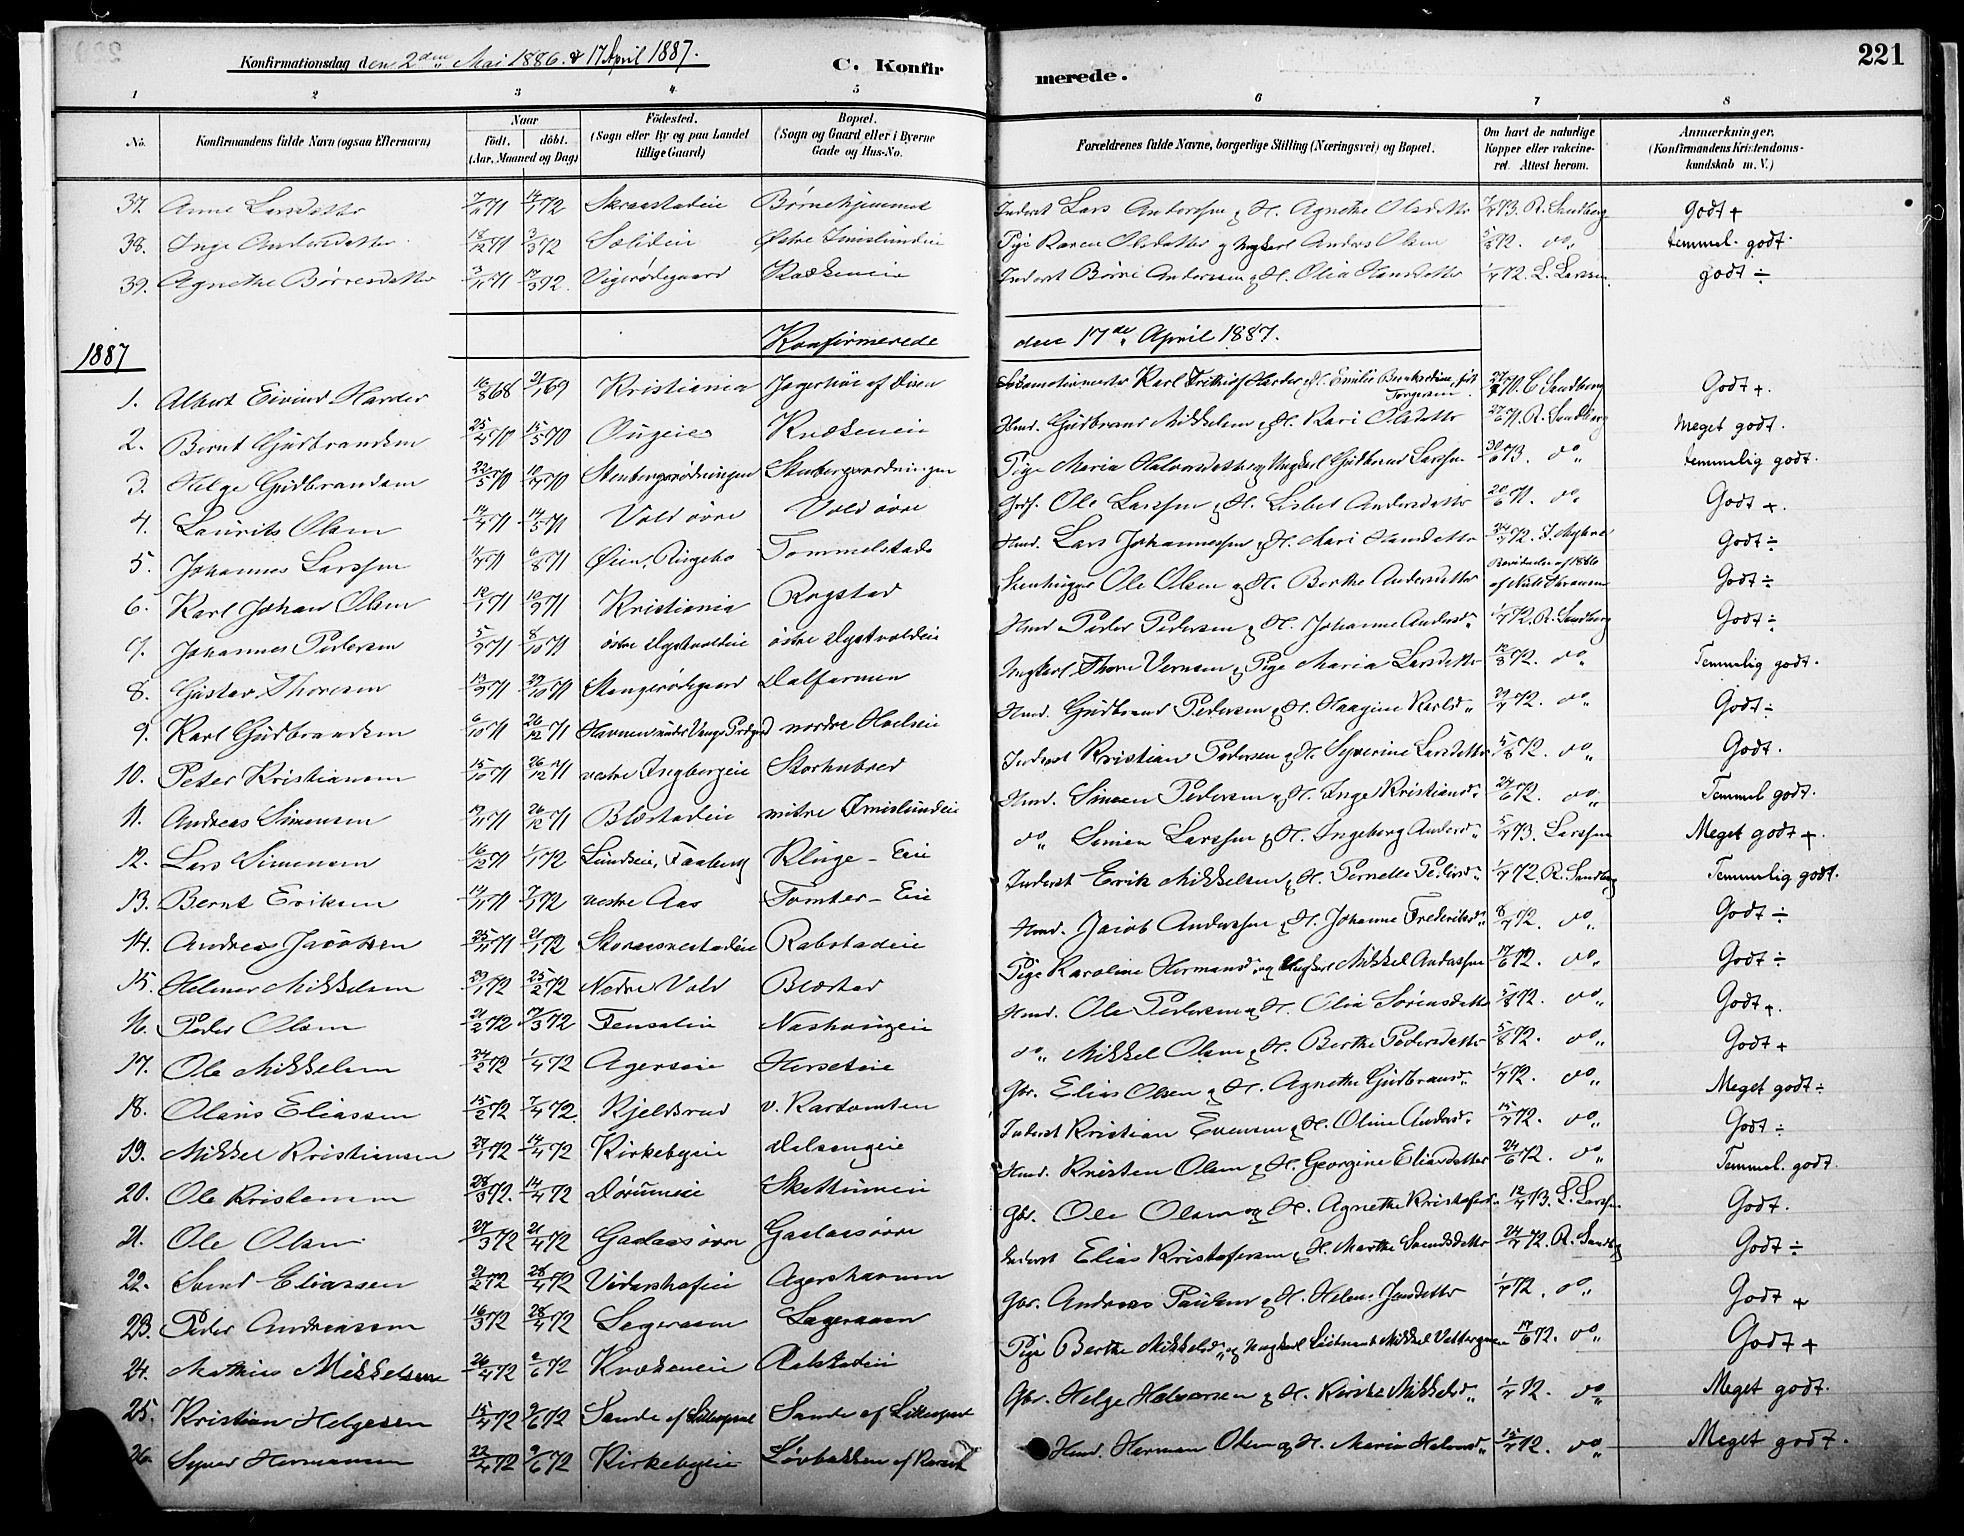 Konfirmationsdag den 2den Mai 1886. & 17 April 1887.
C. Konfirmerede.
221
1 2 3 4 5 6 7 8
No.
Konfirmandens fulde Navn (ogsaa Efternavn)
Naar født. døbt. (Aar, Maaned og Dag)
Fødested. (Sogn eller By og paa Landet tillige Gaard)
Bopæl. (Sogn og Gaard eller i Byerne Gade og Hus-No.
Forældrenes fulde Navne, borgerlige Stilling (Næringsvei) og Bopæl.
Om havt de naturlige Kopper eller vakcineret. Attest herom.
Anmærkninger. (Konfirmandens Kristendomskundskab m. V.)
37. Anne Larsdatter 14/1 72 Skraastadeie Børnehjemmet Inderst Lars Anderssen & H. Agnethe Olsdatter R. Sandberg Godt +
38. Inge Andersdatter 18/12 71 3/3 72 Sælideie Østre Imislundeie Pige Karen Olsdatter og Ungkarl Anders Olsen do temmel. godt.
39. Agnethe Børresdatter 3/11 71 Vigerødegaard Krækeneie Inderst Børre Anderssen & H. Olia Hansdatter L. Larssen. godt ÷
1887 Konfirmerede den 17de April 1887.
1. Albert Eivind Harder 16/8 68 Kristiania Karl Fritiof Harder & H. Emilie født Torgersen. C. Sandberg Godt +.
2. Bernt Gudbrandsen 25/4 70 15/5 70 Krækeneie Hmd. Gudbrand Mikkelsen & H. Kari Olsdatter 27/6 71. R. Sandberg Meget godt.
3. Helge Gudbrandsen 22/5 70 10/7 70 Stenbergsrødningen Stenbergsrødningen Pige Maria Halvorsdatter og Ungkarl Gudbrand Larssen 30/6 73. do temmelig godt.
4. Laurits Olsen 14/4 71 14/5 71 Vold øvre Vold øvre Ole Larssen & H. Lisbet Andersdatter 20/6 71. do Godt +.
5. Johannes Larssen 6/8 71 Øien, Ringebo Tommelstad Hmd. Lars Johannessen & H. Mari Hansdatter Godt ÷
6. Karl Johan Olsen Kristiania Rogstad Stenhugger Ole Olsen og H. Berthe Andersdatter af 1886 Godt ÷
7. Johannes Pedersen 5/9 71 8/10 71 østre Dystvoldeie østre Dystvoldeie Hmd Peder Pedersen & H. Johanne Andersd. 72. R. Sandberg Godt ÷
8. Gustav Thoresen 13/9 71 29/10 71 Stangerødegaard Dalfarmen Ungkarl Thore Evensen & Pige Maria Larsdatter 12/8 72. do Temmelig godt.
9. Karl Gudbrandsen 6/10 71 26/12 71 nordre Hoelseie Hmd. Gudbrand Pedersen & H. Haagine Karlsd. 72. do Godt ÷
10. Peter Kristiansen 15/10 71 26/12 71 vestre Ingbergeie Storhubred Inderst Kristian Pedersen & H. Syverine Larsdatter 5/8 72. do Godt.
11. Andreas Simensen 26/12 71 Blæstadeie mitre Imislundeie Hmd. Simen Pedersen & H. Inge Kristiansd. 24/6 72. do Temmel godt.
12. Lars Simensen 16/12 71 1/1 72 Lundseie, Faaberg Klinge - Eie do Simen Larssen & H. Ingeborg Andersd. 5/7 73. Larssen Meget godt +.
13. Bernt Eriksen 7/1 72 vestre Aas Tomter - Eie Inderst Erik Mikkelsen & H. Pernelle Pedersd. 1/7 72. R. Sandberg Temmelig godt.
14. Andreas Jacobsen 25/11 71 21/1 72 Rabstadeie Hmd. Jacob Anderssen & H. Johanne Frederiksd. 8/7 72. do Godt ÷
15. Helmer Mikkelsen 29/1 72 25/2 72 Nedre Vold Blæstad Pige Karoline Hermansd. og Ungkarl Mikkel Anderssen 17/6 72. do Godt ÷
16. Peder Olsen 21/2 72 17/3 72 Fensalie Nashougeie Hmd. Ole Pedersen & H. Olia Sørensdatter 5/8 72. do Godt +.
17. Ole Mikkelsen 24/2 72 1/4 72 Agerseie Horseteie do Mikkel Olsen & H. Berthe Pedersdatter 5/8 72. do Godt +
18. Olaus Eliassen 15/2 72 7/4 72 Kjeldsrud v. Kartomten Gbr. Elias Olsen & H. Agnethe Gudbrandsd. 1/7 72. do Meget godt ÷
19. Mikkel Kristiansen 27/1 72 14/4 72 Kirkebyeie Dalsengeie Inderst Kristian Evensen & H. Oline Andersd. 15/7 72. do Godt ÷
20. Ole Kristensen 28/3 72. 14/4 72 Dørumeie Skattumeie Hmd. Kristen Olsen & H. Georgine Eliasdatter 24/6 72. do Temmel. godt.
21. Ole Olsen 27/3 72 21/4 72 Gaalaas øvre Gaalaas øvre Gbr. Ole Olsen og H. Agnethe Kristofersd. 12/7 73. L. Larssen Godt.
22. Svend Eliassen 2/2 72 28/4 72 Agershaven Inderst Elias Kristofersen & H. Marthe Svendsdatter 24/7 72. R. Sandberg Godt ÷
23. Peder Andreassen 16/3 72 28/4 72 Sageraaen Sageraaen Gbr. Andreas Paulsen & H. Helene Jensdatter 1/7 72. do Godt +
24. Mathias Mikkelsen 26/4 72 2/6 72 Krækeneie Rabstadeie Pige Berthe Mikkelsd. og Ungkarl Mikkel 17/6 72. do Godt +
25. Kristian Helgesen 15/4 72 9/6 72 Sande af Lilleropset Sande af Lilleropset Gbr. Helge Halvorsen & H. Mikkelsd. 1/7 72. do Meget godt.
26. Syver Hermansen 22/4 72 9/6 72 Kirkebyeie Løvbakken af Hmd. Herman Olsen & H. Maria Halvorsd. 15/7 72. do Meget godt.